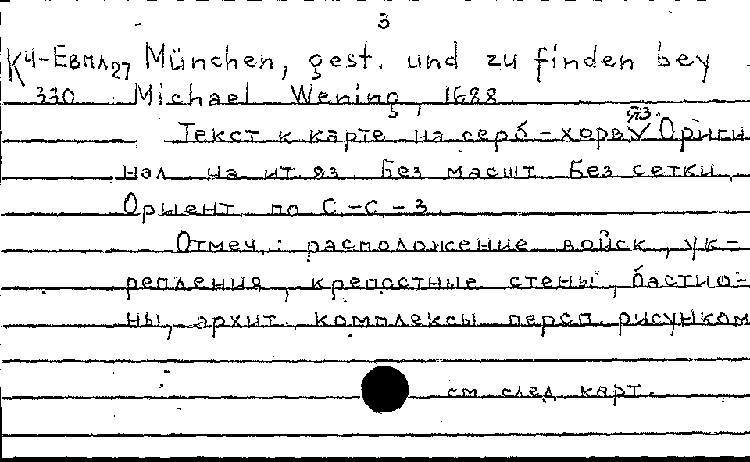 3
К4-Евпл27 München, gest. und zu finden bey
330 Michael Wening, 1688
Текст к карте на серб-хорв. яз. Ориги
нал на ит. яз. Без масшт. Без сетки.
Ориент по С-С-З
Отмеч.: расположение войск, ук-
репления, крепостные стены, бастио-
ны, архит. комплексы персп. рисунком
см след карт.